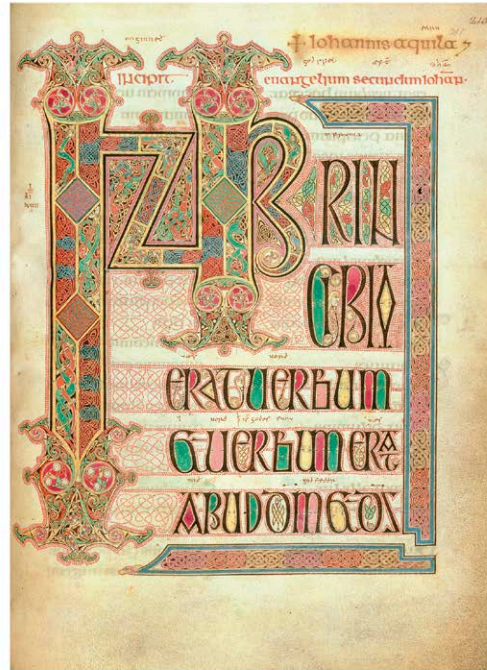 + Iohannis aquila
incipit euangelium secundum iohan·
IN PRIN
CIPIO
ERAT UERBUM
ET UERBUM ERAT
APUD DM ET DS